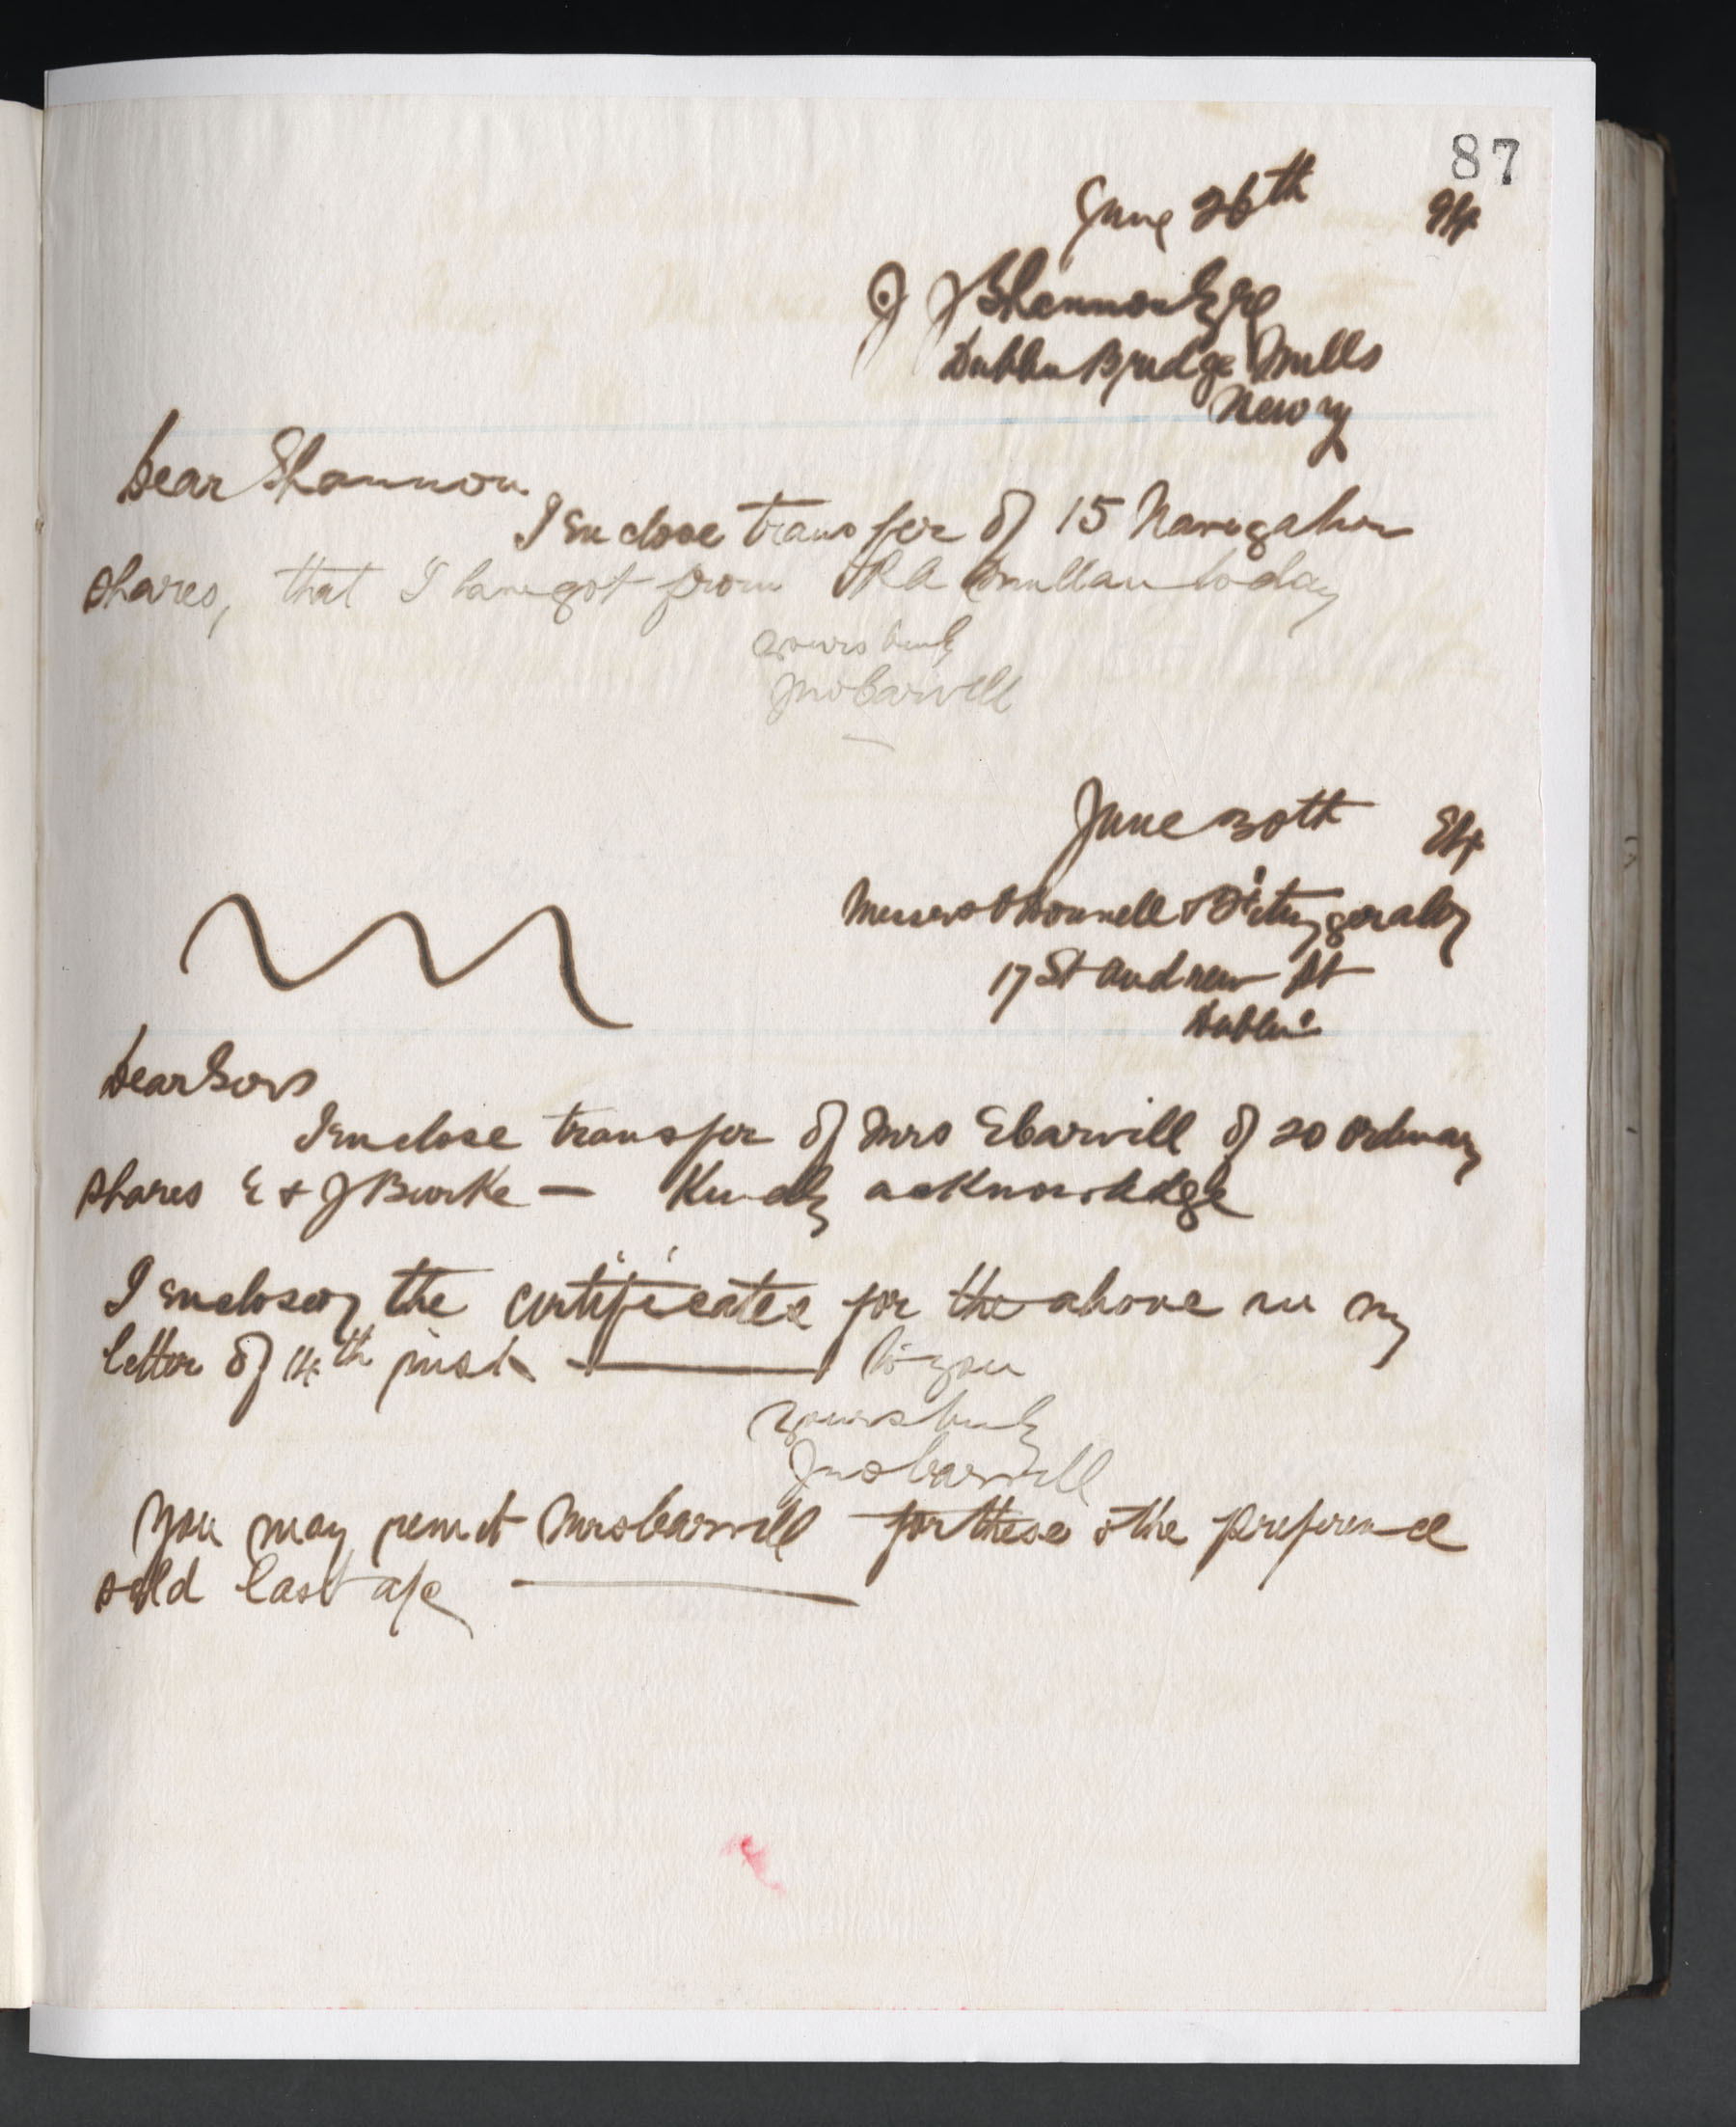 87
June 26th 94
J J Shannon Esqre
Dublin Bridge Mills
Newry
Dear Shannon
I Enclose transfer of 15 Navigation
shares, that I have got from RA Mullan today
yours truly
Jno Carvill
June 30th 94
Messrs O Donnell & Fitzgerald
17 St Andrew St
Dublin
Dear Sirs
I enclose transfer of Mrs E Carvill of 20 Ordinary
shares E & J Burke — Kindly acknowledge
I enclosed the certificates for the above in my
letter of 14th inst — to you
yours truly
Jno Carvill
You may remit Mrs Carvill for these & the preference
sold last a/c —